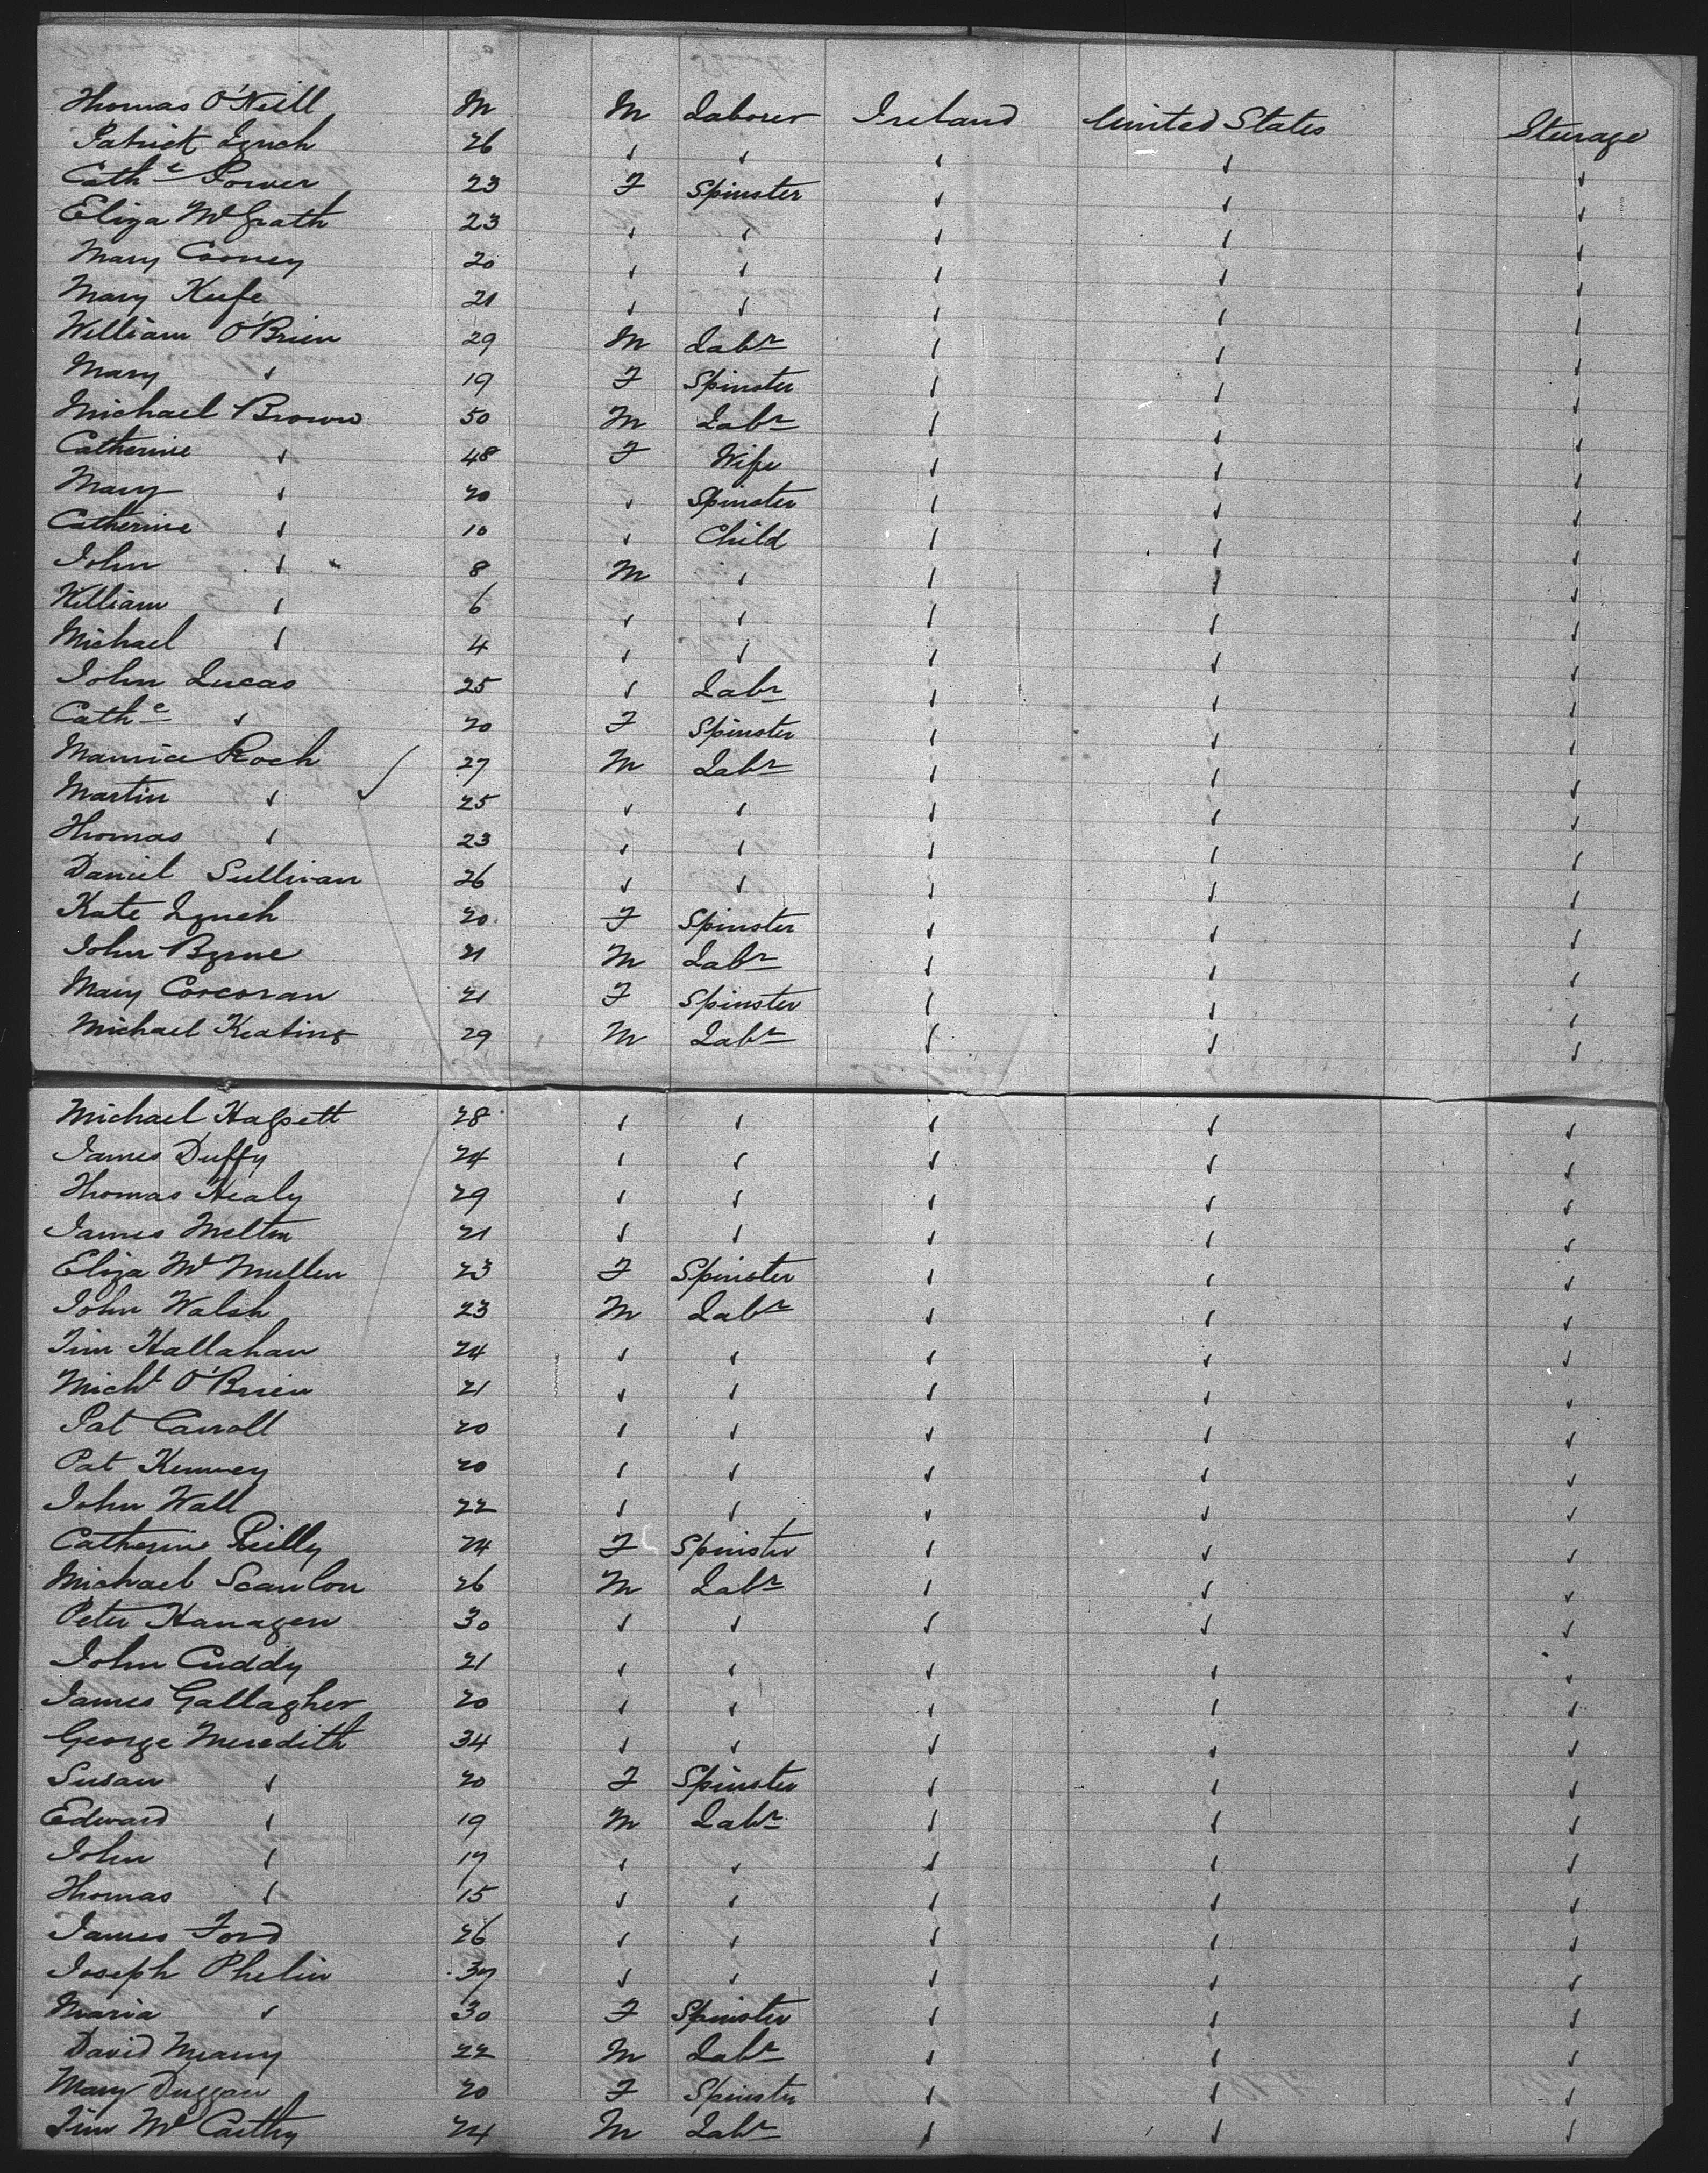 Thomas O'Neill M M Laborer Ireland United States Steerage
Patrick Lynch 26 ✓ ✓ ✓ ✓ ✓
Cathe Power 23 F Spinster ✓ ✓ ✓
Eliza McGrath 23 ✓ ✓ ✓ ✓ ✓
Mary Cooney 20 ✓ ✓ ✓ ✓ ✓
Mary Keefe 21 ✓ ✓ ✓ ✓ ✓
William O'Brien 29 M Labr ✓ ✓ ✓
Mary ✓ 19 F Spinster ✓ ✓ ✓
Michael Brown 50 M Labr ✓ ✓ ✓
Catherine ✓ 48 F Wife ✓ ✓ ✓
Mary ✓ 20 ✓ Spinster ✓ ✓ ✓
Catherine ✓ 10 ✓ Child ✓ ✓ ✓
John ✓ 8 M ✓ ✓ ✓ ✓
William ✓ 6 ✓ ✓ ✓ ✓ ✓
Michael ✓ 4 ✓ ✓ ✓ ✓ ✓
John Lucas 25 ✓ Labr ✓ ✓ ✓
Cathe ✓ 20 F Spinster ✓ ✓ ✓
Maurice Roch 27 M Labr ✓ ✓ ✓
Martin ✓ ✓ 25 ✓ ✓ ✓ ✓ ✓
Thomas ✓ 23 ✓ ✓ ✓ ✓ ✓
Daniel Sullivan 26 ✓ ✓ ✓ ✓ ✓
Kate Lynch 20 F Spinster ✓ ✓ ✓
John Byrne 21 M Labr ✓ ✓ ✓
Mary Corcoran 21 F Spinster ✓ ✓ ✓
Michael Keating 29 M Labr ✓ ✓ ✓
Michael Hassett 28 ✓ ✓ ✓ ✓ ✓
James Duffy 24 ✓ ✓ ✓ ✓ ✓
Thomas Healy 29 ✓ ✓ ✓ ✓ ✓
James Melton 21 ✓ ✓ ✓ ✓ ✓
Eliza McMullen 23 F Spinster ✓ ✓ ✓
John Walsh 23 M Labr ✓ ✓ ✓
Tim Hallahan 24 ✓ ✓ ✓ ✓ ✓
Michl O'Brien 21 ✓ ✓ ✓ ✓ ✓
Pat Carroll 20 ✓ ✓ ✓ ✓ ✓
Pat Kenney 20 ✓ ✓ ✓ ✓ ✓
John Wall 22 ✓ ✓ ✓ ✓ ✓
Catherine Reilly 24 F Spinster ✓ ✓ ✓
Michael Scanlon 26 M Labr ✓ ✓ ✓
Peter Hanagen 30 ✓ ✓ ✓ ✓ ✓
John Cuddy 21 ✓ ✓ ✓ ✓ ✓
James Gallagher 20 ✓ ✓ ✓ ✓ ✓
George Meredith 34 ✓ ✓ ✓ ✓ ✓
Susan ✓ 20 F Spinster ✓ ✓ ✓
Edward ✓ 19 M Labr ✓ ✓ ✓
John ✓ 17 ✓ ✓ ✓ ✓ ✓
Thomas ✓ 15 ✓ ✓ ✓ ✓ ✓
James Ford 26 ✓ ✓ ✓ ✓ ✓
Joseph Phelin 37 ✓ ✓ ✓ ✓ ✓
Maria ✓ 30 F Spinster ✓ ✓ ✓
David Meany 22 M Labr ✓ ✓ ✓
Mary Duggan 20 F Spinster ✓ ✓ ✓
Tim McCarthy 24 M Labr ✓ ✓ ✓